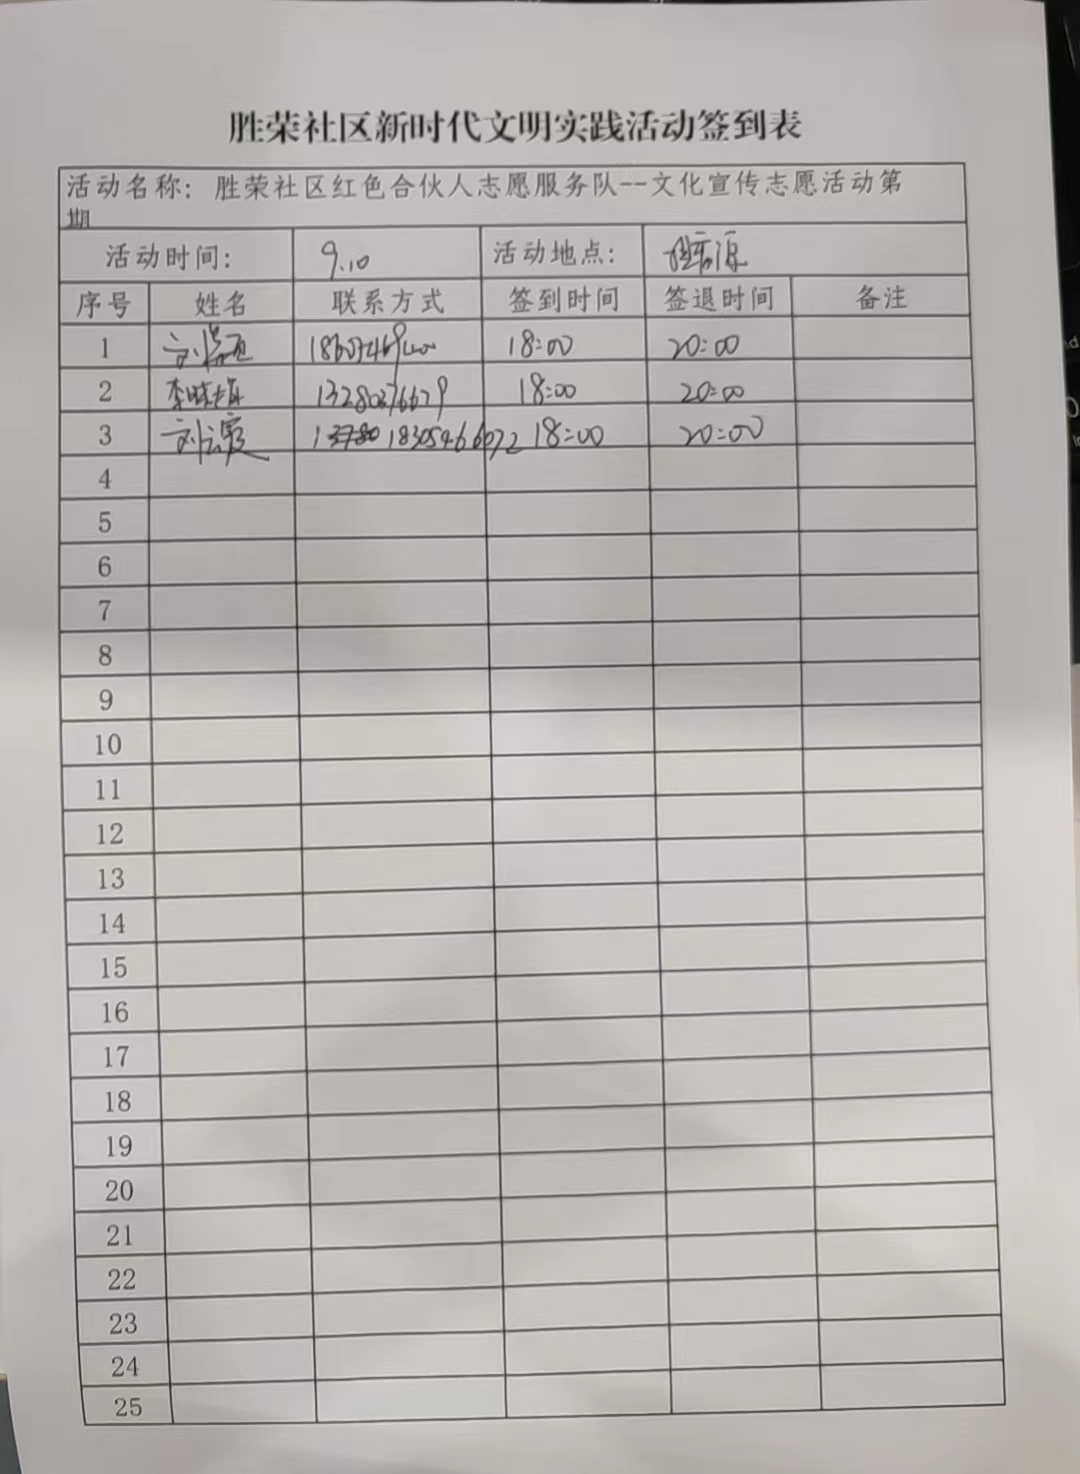 胜荣社区新时代文明实践活动签到表
活动名称：胜荣社区红色合伙人志愿服务队--文化宣传志愿活动第
期
活动时间： 9.10 活动地点：
序号 姓名 联系方式 签到时间 签退时间 备注
1 18:00 20:00
2 李晓梅 13280376629 18:00 20:00
3 刘云霞 18305466072 18:00 20:00
4
5
6
7
8
9
10
11
12
13
14
15
16
17
18
19
20
21
22
23
24
25